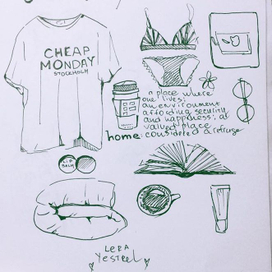 CHEAP
MONDAY
STOCKHOLM
a place where
one lives;
an environment
affording security
and happiness; a
valued place,
home: considered a refuge
LERA
YESTREL